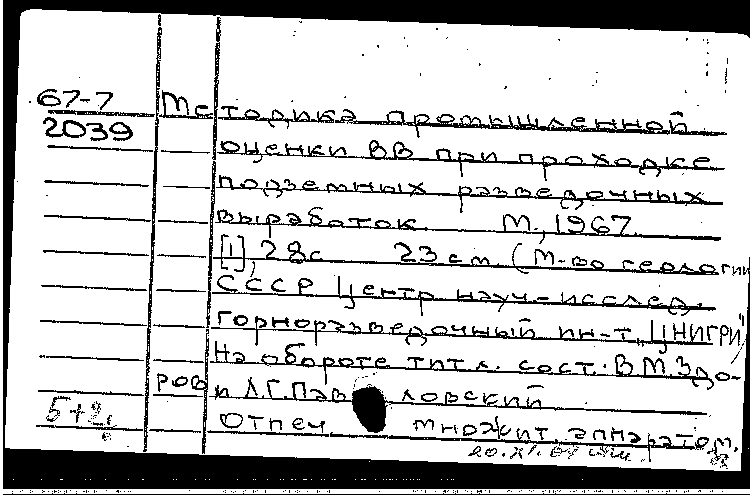 67-7 Методика промышленной
2039 оценки ВВ при проходке
подземных разведочных
выработок. М., 1967.
[1], 28 с 23 см. (М-во геологии
СССР Центр науч-исслед.
горноразведочный ин-т "ЦНИГРИ")
На обороте тит. л. сост. В.М. Здо-
ров и Л.Г. Павловский
5+2. Отпеч множит. аппаратом.